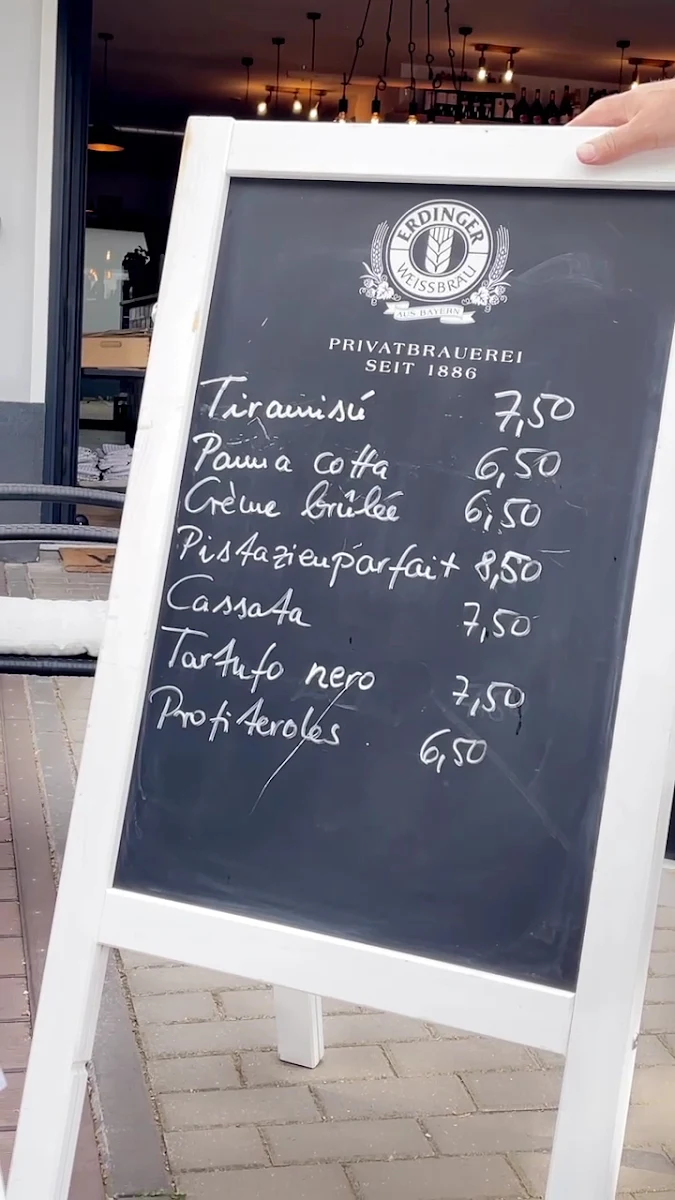 ERDINGER
WEISSBRÄU
AUS BAYERN
PRIVATBRAUEREI
SEIT 1886
Tiramisú 7,50
Panna cotta 6,50
Crème brûlée 6,50
Pistazienparfait 8,50
Cassata 7,50
Tartufo nero 7,50
Profiteroles 6,50